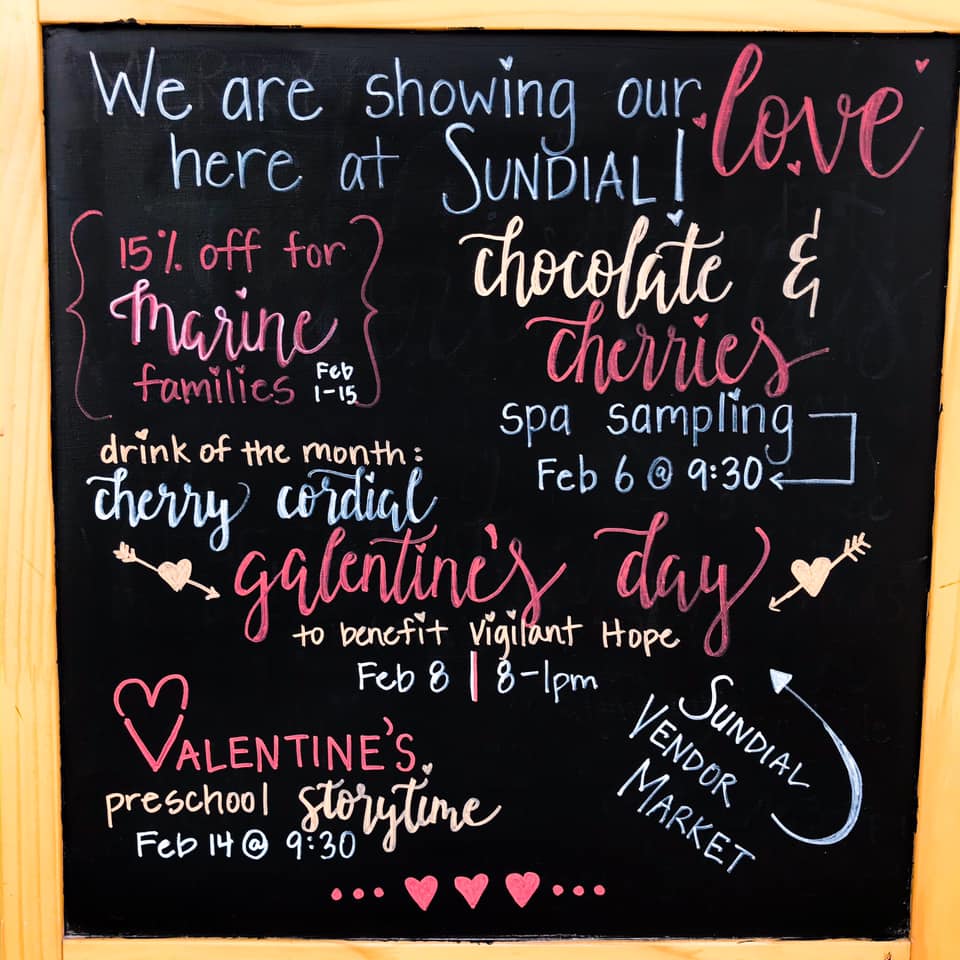 We are showing our love
here at SUNDIAL!
15% off for
Marine
families Feb
1-15
chocolate &
cherries
spa sampling
Feb 6 @ 9:30
drink of the month:
cherry cordial
galentine's day
to benefit Vigilant Hope
Feb 8 | 8-1pm
VALENTINE'S
preschool storytime
Feb 14 @ 9:30
SUNDIAL
VENDOR
MARKET